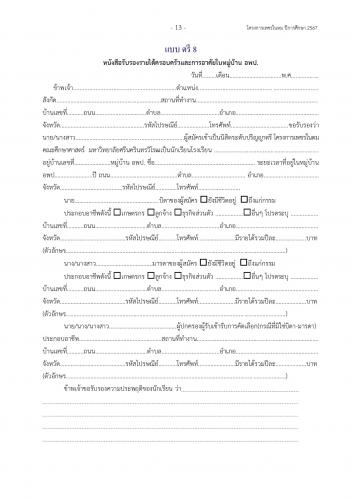 - 13 - โครงการเพชรในตม ปีการศึกษา 2567
แบบ ตรี 8
หนังสือรับรองรายได้ครอบครัวและการอาศัยในหมู่บ้าน อพป.
วันที่.........เดือน.................................พ.ศ..............
ข้าพเจ้า............................................................ตำแหน่ง............................................................
สังกัด............................................................สถานที่ทำงาน............................................................
บ้านเลขที่.........ถนน..............................ตำบล..............................อำเภอ..............................
จังหวัด..............................รหัสไปรษณีย์..............โทรศัพท์..............................ขอรับรองว่า
นาย/นางสาว............................................................ผู้สมัครเข้าเป็นนิสิตระดับปริญญาตรี โครงการเพชรในตม
คณะศึกษาศาสตร์ มหาวิทยาลัยศรีนครินทรวิโรฒเป็นนักเรียนโรงเรียน ........................................
อยู่บ้านเลขที่..............หมู่บ้าน อพป. ชื่อ........................................ ระยะเวลาที่อยู่ในหมู่บ้าน
อพป...............ปี ถนน..............................ตำบล.............................. อำเภอ..............................
จังหวัด..............................รหัสไปรษณีย์..............โทรศัพท์..............................
นาย........................................บิดาของผู้สมัคร ☐ยังมีชีวิตอยู่ ☐ถึงแก่กรรม
ประกอบอาชีพดังนี้ ☐เกษตรกร ☐ลูกจ้าง ☐ธุรกิจส่วนตัว ..............☐อื่นๆ โปรดระบุ ..............
บ้านเลขที่.........ถนน..............................ตำบล..............................อำเภอ..............................
จังหวัด..............................รหัสไปรษณีย์..............โทรศัพท์..............มีรายได้รวมปีละ..............บาท
(ตัวอักษร............................................................)
นาง/นางสาว..............................มารดาของผู้สมัคร ☐ยังมีชีวิตอยู่ ☐ถึงแก่กรรม
ประกอบอาชีพดังนี้ ☐เกษตรกร ☐ลูกจ้าง ☐ธุรกิจส่วนตัว ..............☐อื่นๆ โปรดระบุ ..............
บ้านเลขที่.........ถนน..............................ตำบล..............................อำเภอ..............................
จังหวัด..............................รหัสไปรษณีย์..............โทรศัพท์..............มีรายได้รวมปีละ..............บาท
(ตัวอักษร............................................................)
นาย/นาง/นางสาว..............................ผู้ปกครองผู้รับเข้ารับการคัดเลือก(กรณีที่มิใช่บิดา-มารดา)
ประกอบอาชีพ..............................สถานที่ทำงาน........................................
บ้านเลขที่.........ถนน..............................ตำบล..............................อำเภอ..............................
จังหวัด..............................รหัสไปรษณีย์..............โทรศัพท์..............มีรายได้รวมปีละ..............บาท
(ตัวอักษร............................................................)
ข้าพเจ้าขอรับรองความประพฤติของนักเรียน ว่า............................................................